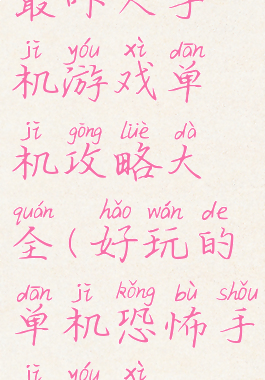 最吓人手
jī yóu xì dān
机游戏单
jī gōng lüè dà
机攻略大
quán hǎo wán de
全(好玩的
dān jī kǒng bù shǒu
单机恐怖手
jī yóu xì